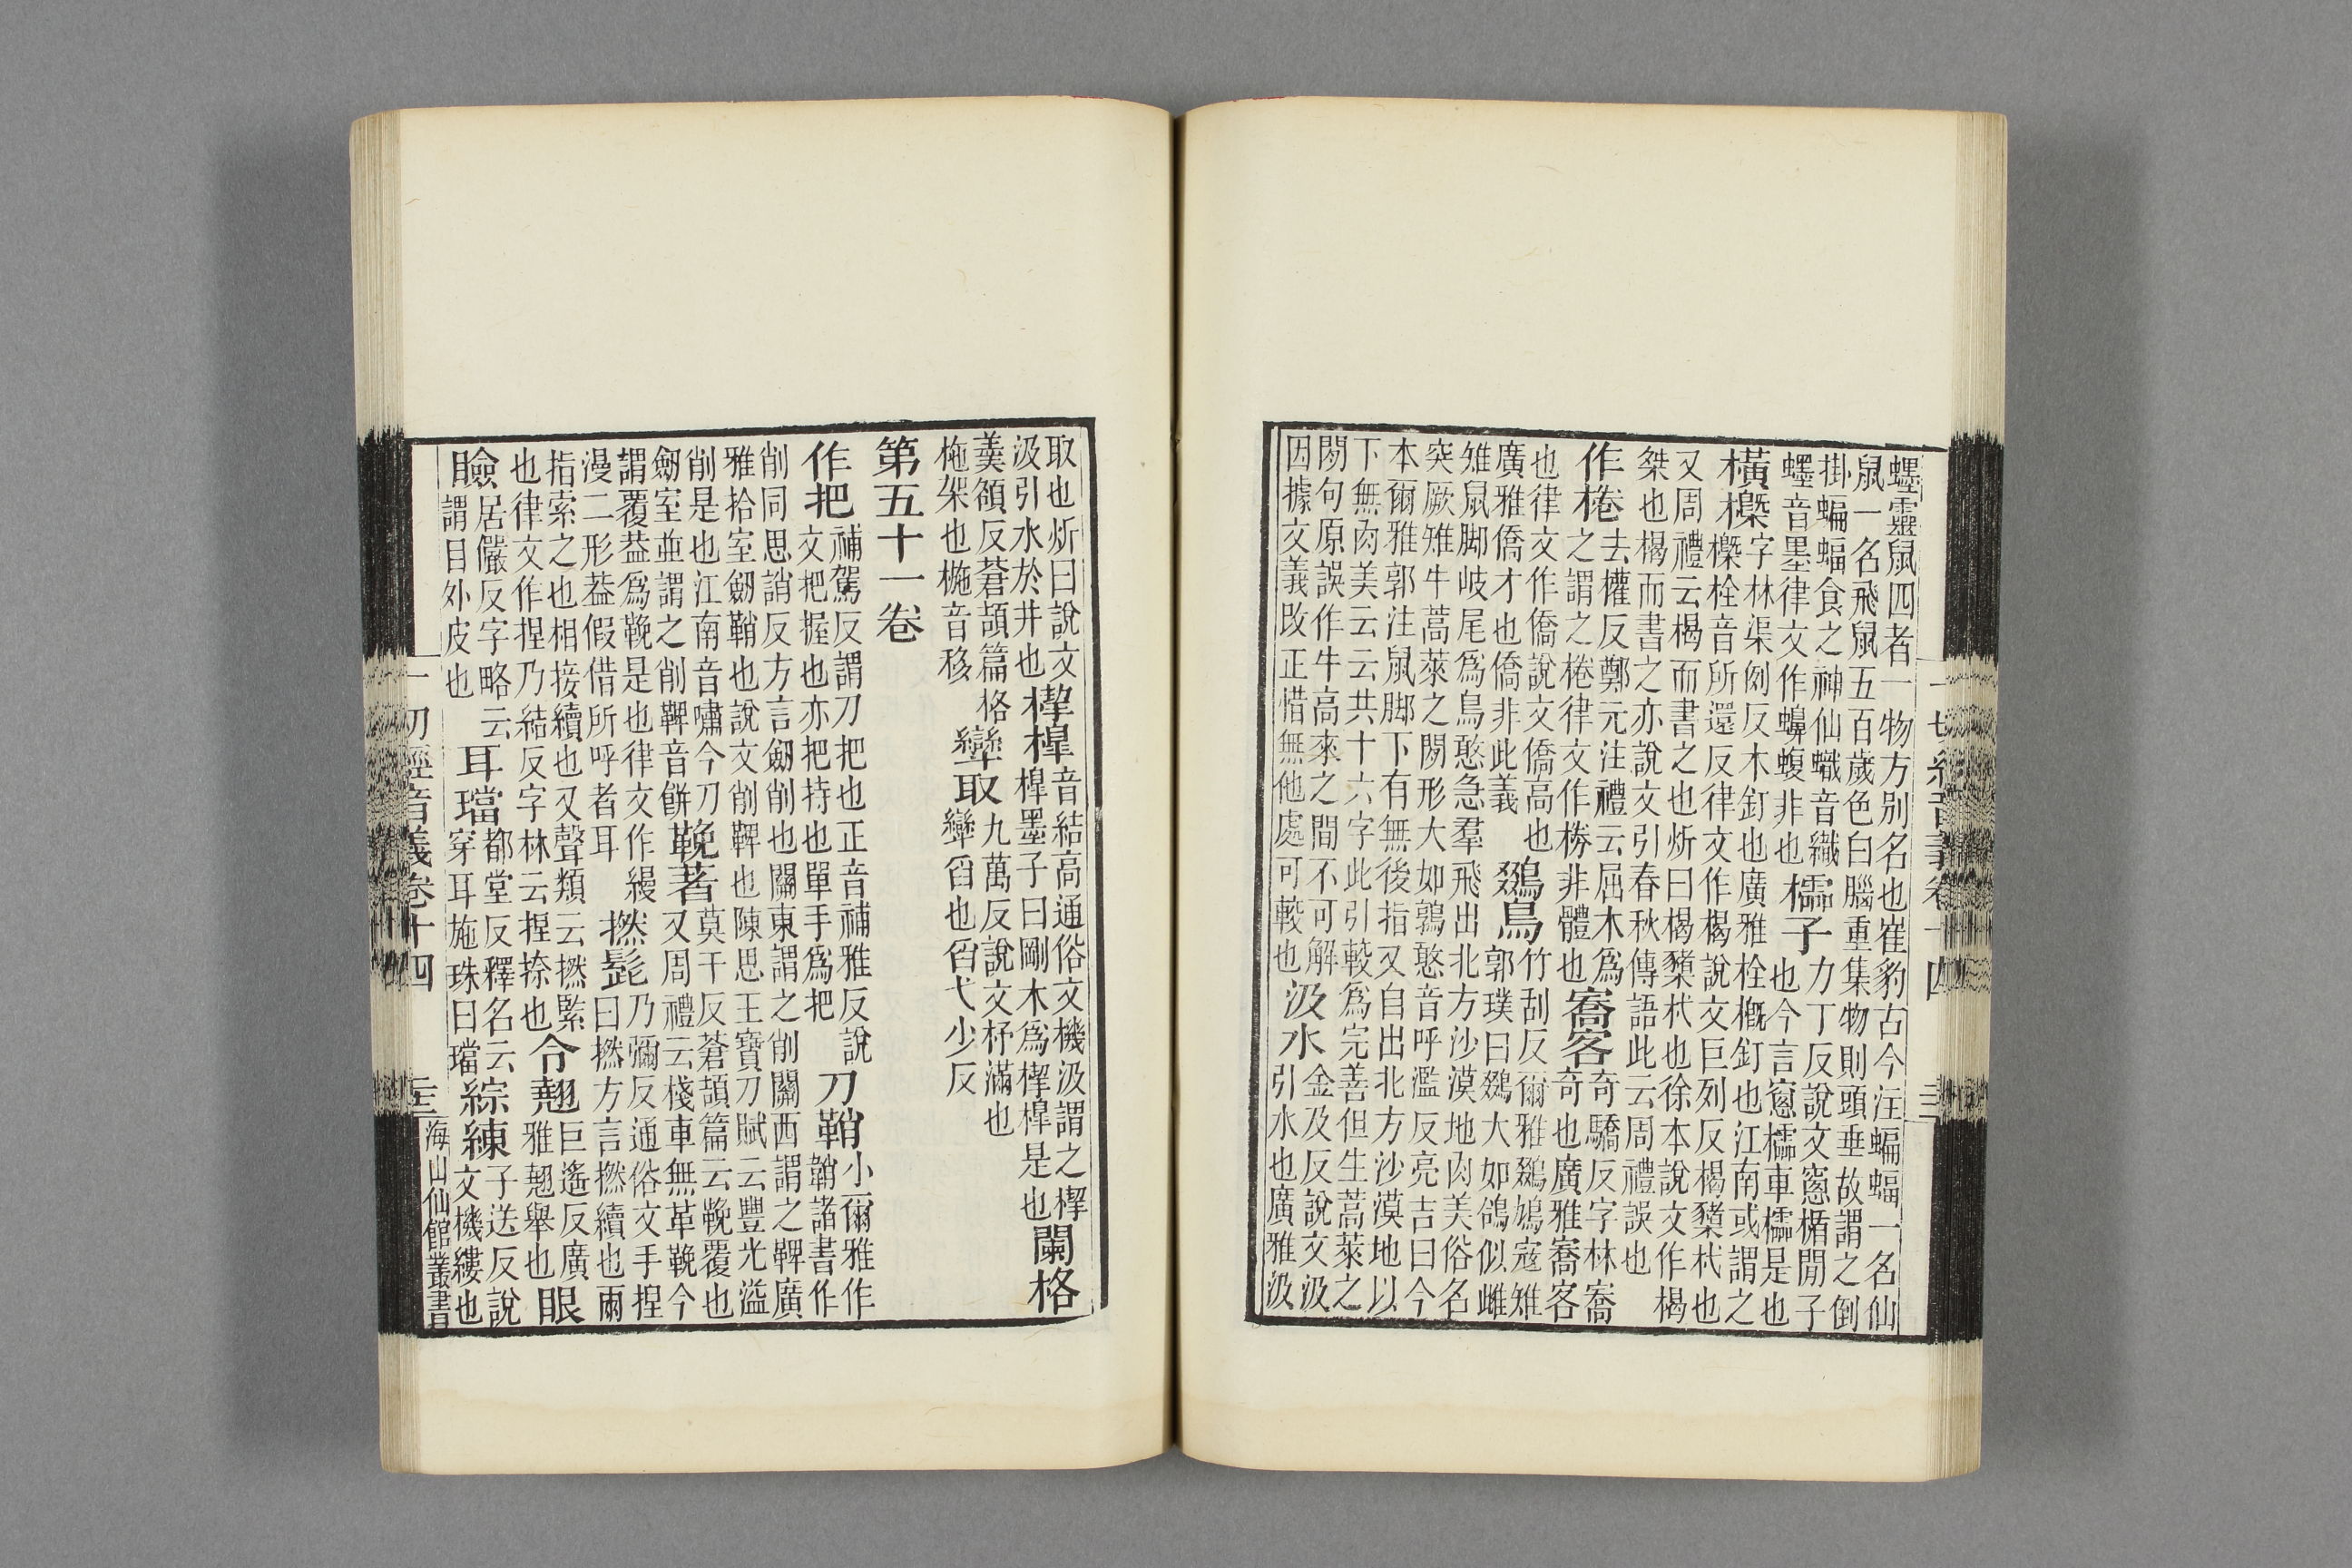 蠷靈鼠四者一物方別名也崔豹古今注蝙蝠一名仙
鼠一名飛鼠五百歲色白腦重集物則頭垂故謂之倒
掛蝙蝠食之神仙蟙音織
櫺子
力丁反說文窻楯閒子
蠷音墨律文作蠌蝮非也
也今言窻櫺車櫺是也
橫橜
字林渠例反木釘也廣雅栓概釘也江南或謂之
橜栓音所還反律文作楬說文巨列反楬櫫杙也
又周禮云楬而書之也炘曰楬櫫杙也徐本說文作楬
桀也楬而書之亦說文引春秋傳語此云周禮誤也
作棬
去權反鄭元注禮云屈木爲
之謂之棬律文作桊非體也
寯客
奇驕反字林寯
奇也廣雅寯客
也律文作僑說文僑高也
廣雅僑才也僑非此義
鵽鳥
竹刮反爾雅鵽鳩寇雉
郭璞曰鵽大如鴿似雌
雉鼠脚岐尾爲鳥憨急羣飛出北方沙漠地肉美俗名
突厥雉牛蒿萊之閡形大如鶉憨音呼濫反亮吉曰今
本爾雅郭注鼠脚下有無後指又自出北方沙漠地以
下無肉美云云共十六字此引較爲完善但生蒿萊之
閡句原誤作牛高來之間不可解
因據文義改正惜無他處可較也
汲水
金及反說文汲
引水也廣雅汲
取也炘曰說文
汲引水於井也
楔槔
音結高通俗文機汲謂之楔
槔墨子曰剛木爲楔槔是也
闌格
羹頟反蒼頡篇格
柂架也椸音移
㪻取
九萬反說文杼滿也
㪻舀也舀弋少反
第五十一卷
作把
補駕反謂刀把也正音補雅反說
文把握也亦把持也單手爲把
刀鞘
小爾雅作
韒諸書作
削同思誚反方言劒削也關東謂之削關西謂之鞞廣
雅拾室劒鞘也說文削鞞也陳思王寶刀賦云豐光溢
削是也江南音嘯今刀
劒室並謂之削鞞音餠
鞔著
莫干反蒼頡篇云鞔覆也
又周禮云棧車無革鞔今
謂覆葢爲鞔是也律文作縵
漫二形葢假借所呼者耳
撚髭
乃彌反通俗文手捏
曰撚方言撚續也爾
指索之也相接續也又聲類云撚緊
也律文作捏乃結反字林云捏捺也
令翹
巨遙反廣
雅翹舉也
眼
瞼
居儼反字略云
謂目外皮也
耳璫
都堂反釋名云
穿耳施珠曰璫
綜練
子送反說
文機縷也
一切經音義卷十四
三
海山仙館叢書